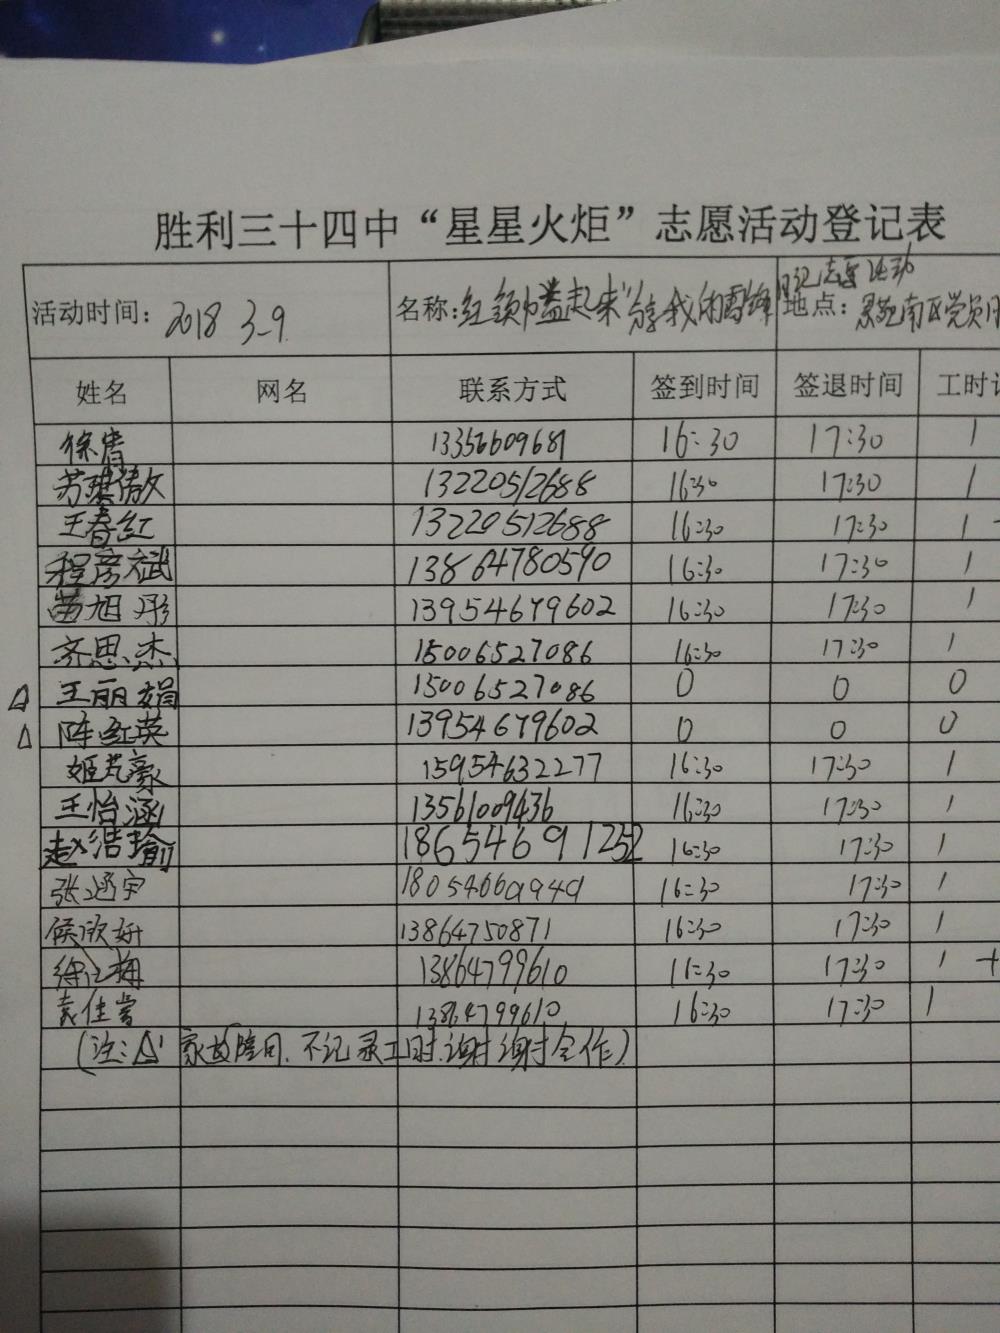 胜利三十四中“星星火炬”志愿活动登记表
活动时间：2018 3-9 名称：红领巾益起来"分享我的雷锋日记志愿活动 地点：景苑南区党员
姓名 网名 联系方式 签到时间 签退时间 工时
徐青 13356609681 16:30 17:30 1
苏琪傲 13220512688 16:30 17:30 1
王春红 13220512688 16:30 17:30 1
程彦斌 13864780590 16:30 17:30 1
苗旭彤 13954679602 16:30 17:30 1
齐思杰 15006527086 16:30 17:30 1
△ 王丽娟 15006527086 0 0 0
△ 陈红英 13954679602 0 0 0
姬芃豪 15954632277 16:30 17:30 1
王怡涵 13561009436 16:30 17:30 1
赵浩瑜 18654691252 16:30 17:30 1
张涵宇 18054660949 16:30 17:30 1
侯欣妍 13864750871 16:30 17:30 1
徐江梅 13864799610 16:30 17:30 1 +
袁佳 13864799610 16:30 17:30 1
(注:△ 家长陪同.不记录工时.谢谢合作)